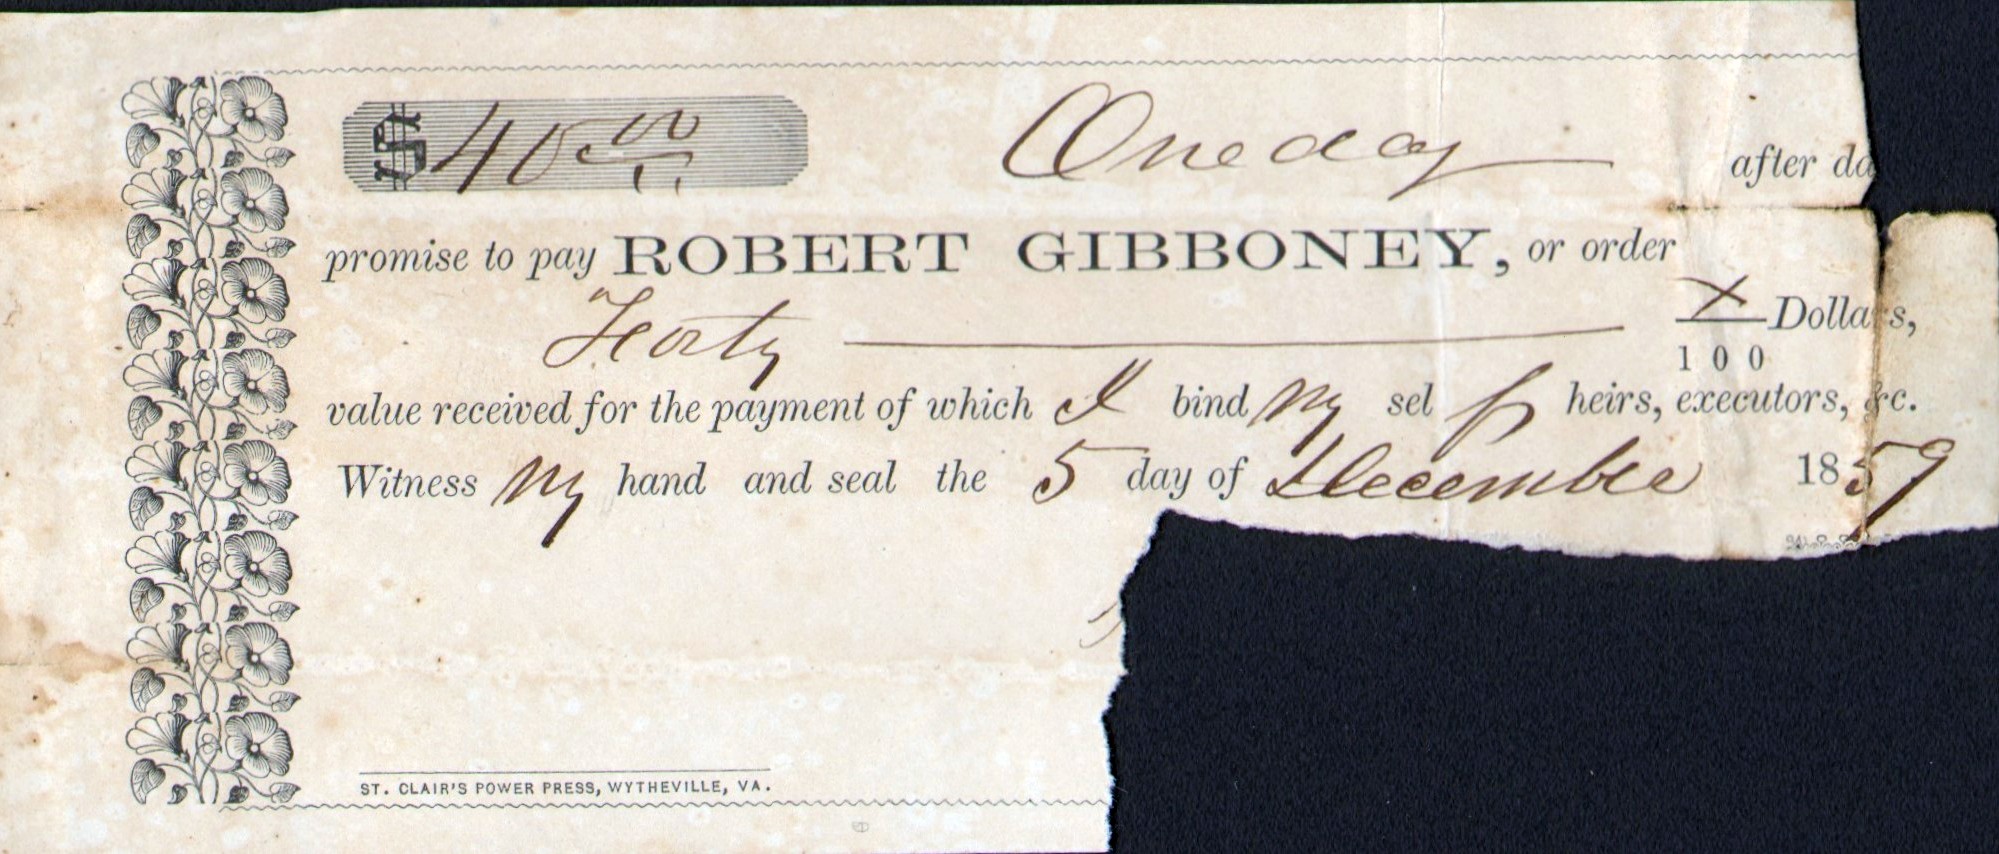 $ 40 00 One day after da
promise to pay ROBERT GIBBONEY, or order
Forty X/100 Dollars,
value received for the payment of which I bind my sel f heirs, executors, &c.
Witness my hand and seal the 5 day of December 1859
ST. CLAIR'S POWER PRESS, WYTHEVILLE, VA.